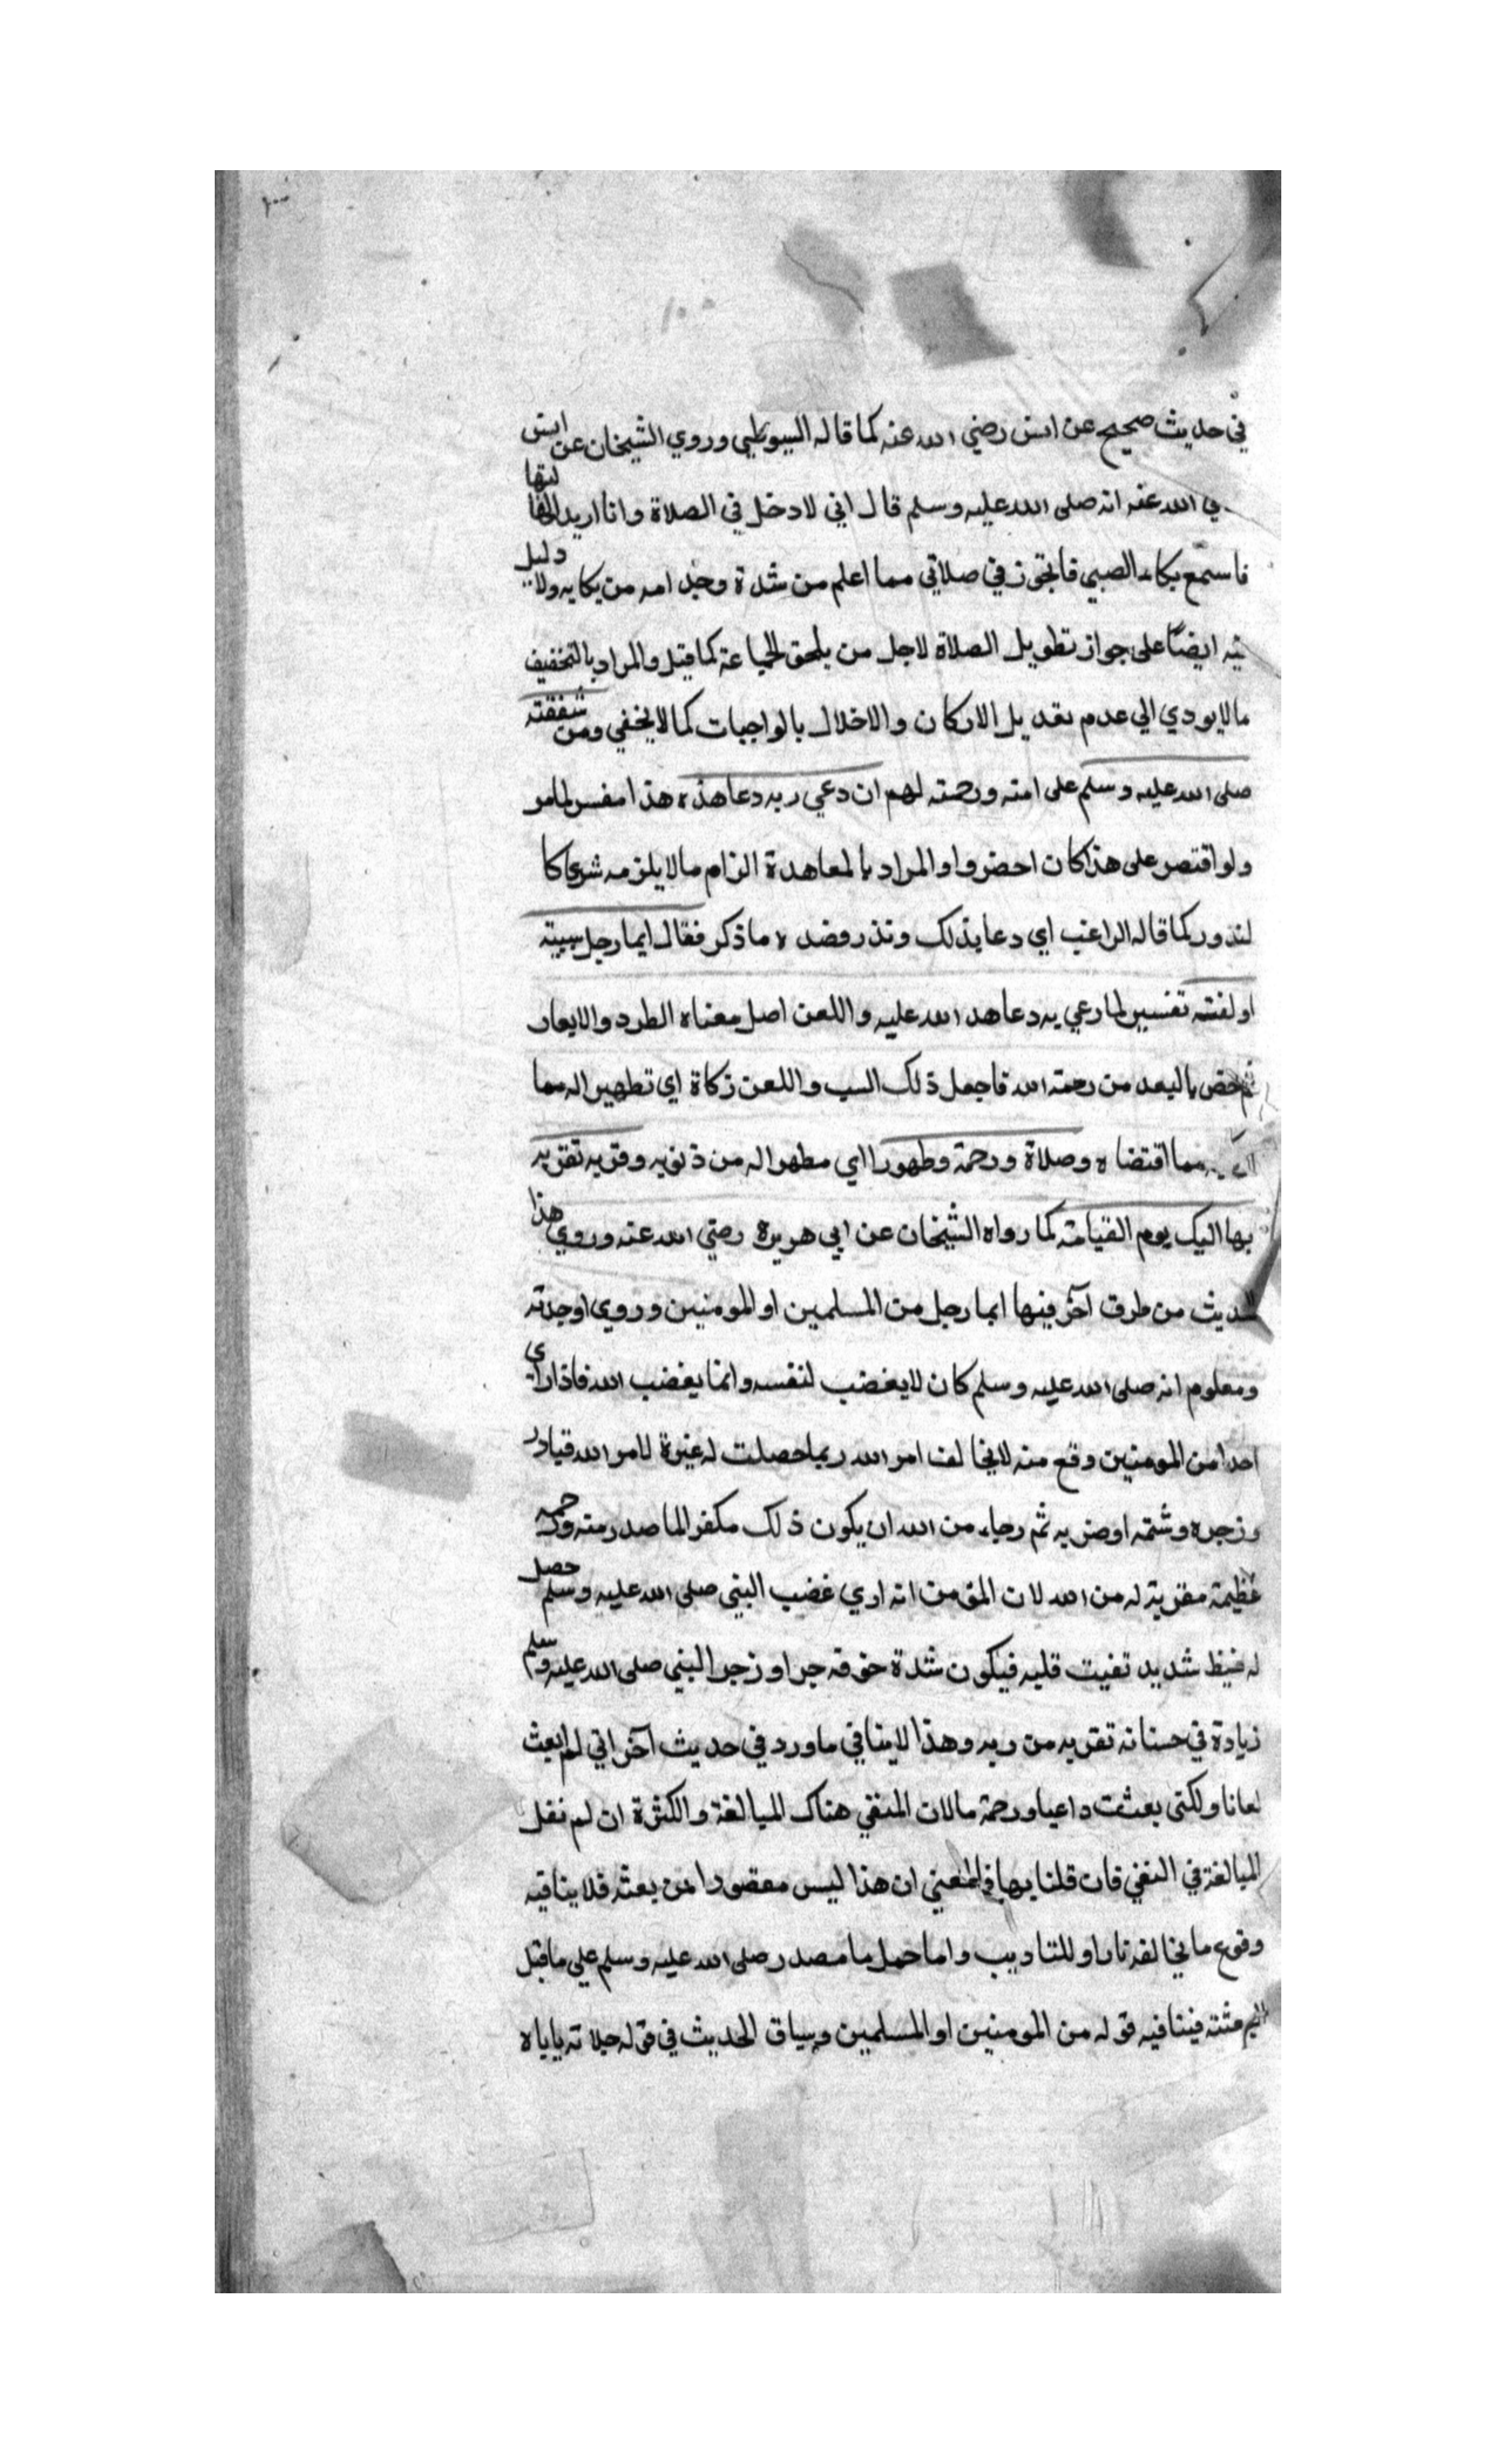 في حديث صحيح عن انس رضي الله عنه كما قاله السيوطي وروي الشيخان عن انس
ي الله عنه انه صلى الله عليه وسلم قال اني لادخل في الصلاة وانا اريد
فاسمع بكاء الصبي فاتجوز في صلاتي مما اعلم من شدة وجد امه من بكايه ولا دليل
فيه ايضا على جواز تطويل الصلاة لاجل من يلحق الجماعة كما قيل والمراد بالتخفيف
مالا يودي الي عدم تعديل الاركان والاخلال بالواجبات كما لا يخفي ومن شفقته
صلى الله عليه وسلم على امته ورحمته لهم ان دعي ربه دعا هذه هذا مفسر لمامر
ولو اقتصر على هذا كان احضر واو المراد بالمعاهدة الزام مالا يلزمه شرعا كا
لنذور كما قاله الراغب اي دعا بذلك ونذر وضده ما ذكر فقال ايما رجل سببته
او لعنته تفسير لما رعي به دعا هد الله عليه واللعن اصل معناه الطرد والابعاد
ثم خص بالبعد من رحمة الله فاجعل ذلك السب واللعن زكاة اي تطهيرا له مما
مما اقتضاه وصلاة ورحمة وطهورا اي مطهرا له من ذنوبه وقربه تقربه
بها اليك يوم القيامة كما رواه الشيخان عن ابي هريرة رضي الله عنه وروي هذا
الحديث من طرق آخر فيها ايما رجل من المسلمين او المومنين وروي او جلدته
ومعلوم انه صلى الله عليه وسلم كان لا يغضب لنفسه وانما يغضب الله فاذا راي
احدا من المومنين وقع منه لا يخالف امر الله ربما حصلت له غيرة لامر الله فبادر
وزجره وشتمه او ضربه ثم رجاء من الله ان يكون ذلك مكفرا لما صدر منه ورحمه
عظيمة مقربة له من الله لان المؤمن انه اري غضب النبي صلى الله عليه وسلم حصل
له غيظ شديد تفيت قلبه فيكون شدة خوفه جراو زجر النبي صلى الله عليه وسلم
زيادة في حسناته تقربه من ربه وهذا لا ينافي ماورد في حديث آخر اني لم ابعث
لعانا ولكني بعثت داعيا ورحمة مالان المنفي هناك المبالغة والكثرة ان لم نقل
المبالغة في النفي فان قلنا بها فالمعني ان هذا ليس مقصودا من بعثه فلا ينافيه
وقوع ما يخالفه نادرا وللتاديب واما حمل ما صدر صلى الله عليه وسلم على ما قبل
فينافيه قوله من المومنين او المسلمين وسياق الحديث في قوله جلاته ياباه